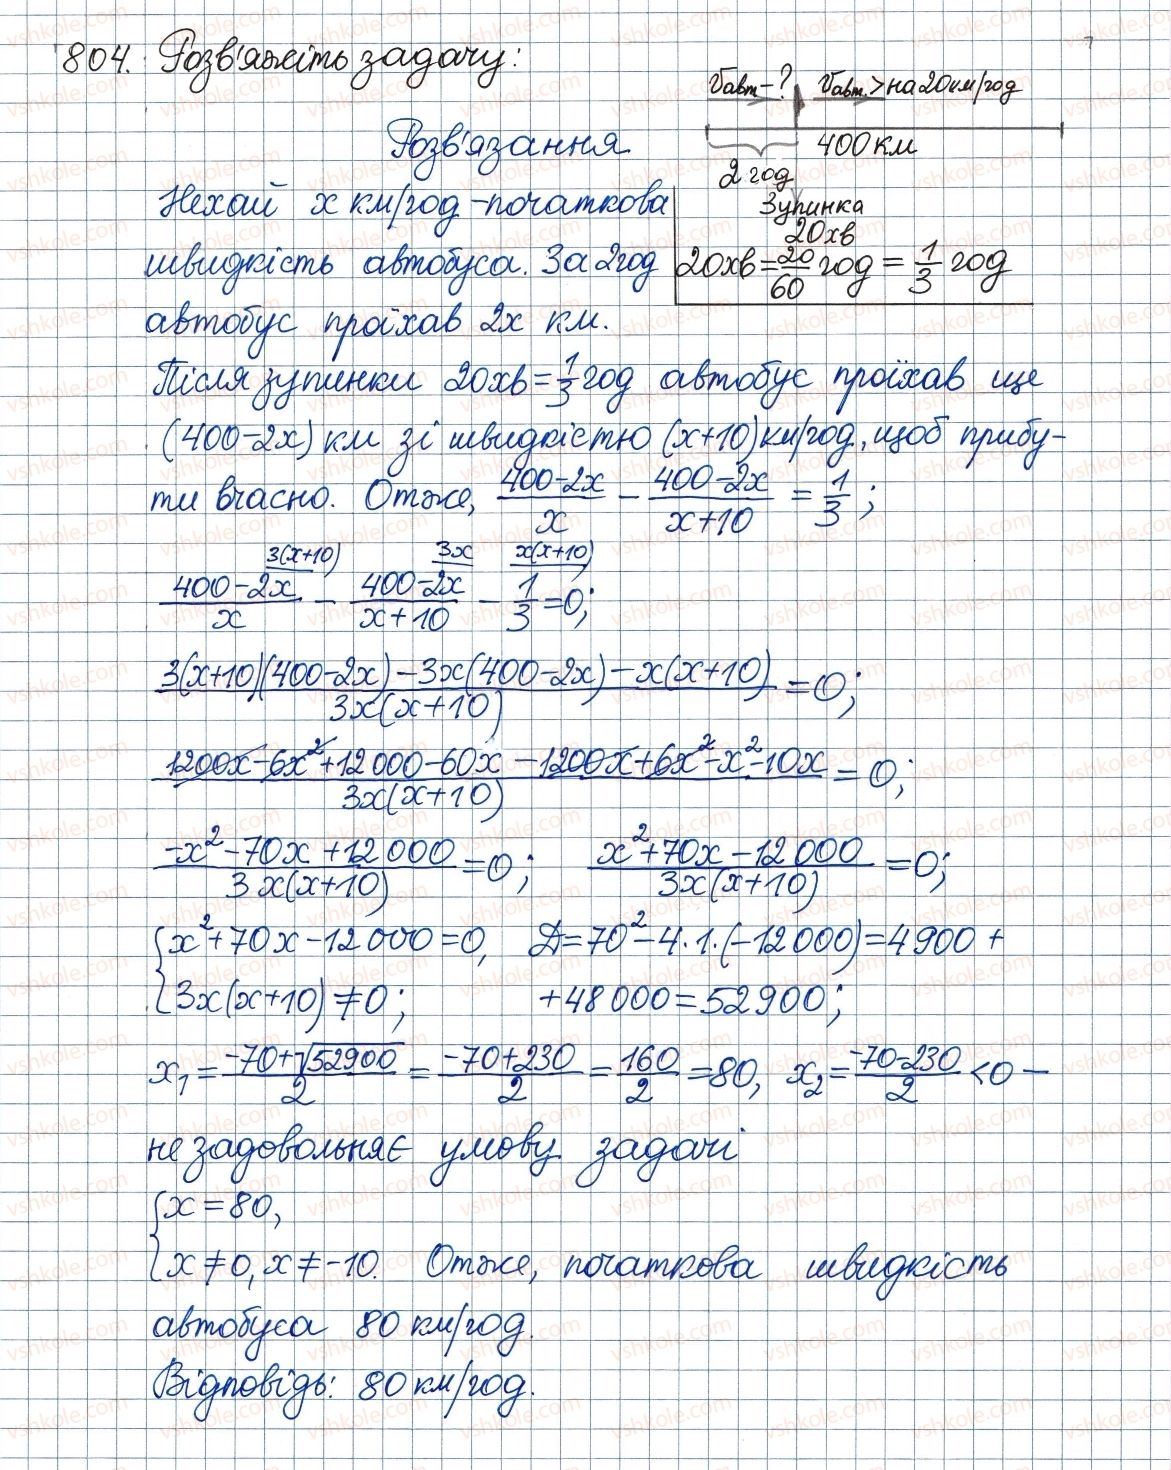 804. Розв'яжіть задачу:
Vавт-? Vавт.>на 20 км/год
400 км
2 год
Зупинка
20хв
20хв=20/60 год = 1/3 год
Розв'язання
Нехай x км/год - початкова
швидкість автобуса. За 2год
автобус проїхав 2x км.
Після зупинки 20хв=1/3 год автобус проїхав ще
(400-2x) км зі швидкістю (x+10)км/год, щоб прибу-
ти вчасно. Отже, (400-2x)/x - (400-2x)/(x+10) = 1/3;
3(x+10) 3x x(x+10)
(400-2x)/x - (400-2x)/(x+10) - 1/3 =0;
(3(x+10)(400-2x)-3x(400-2x)-x(x+10))/(3x(x+10)) =0;
(1200x-6x²+12000-60x-1200x+6x²-x²-10x)/(3x(x+10)) = 0;
(-x²-70x+12000)/(3x(x+10)) =0; (x²+70x-12000)/(3x(x+10)) =0;
{x²+70x-12000=0, D=70²-4·1·(-12000)=4900+
3x(x+10)≠0; +48000=52900;
x₁=(-70+√52900)/2 = (-70+230)/2 = 160/2 =80, x₂=(-70-230)/2 <0 —
не задовольняє умову задачі
{x=80,
x≠0, x≠-10. Отже, початкова швидкість
автобуса 80 км/год.
Відповідь: 80 км/год.